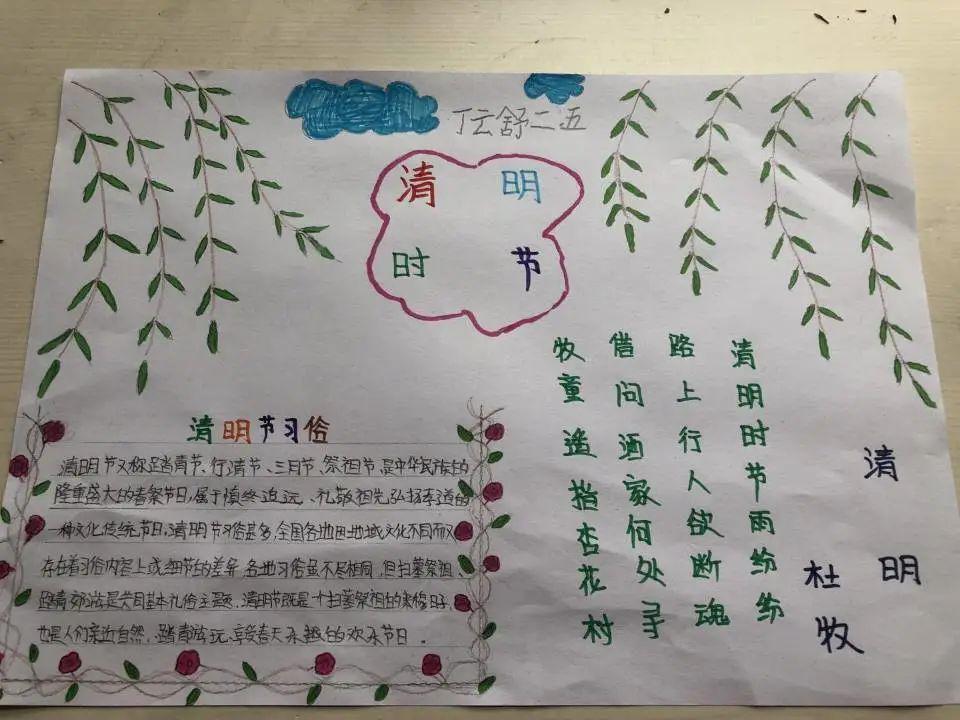 丁云舒二五
清明
时节
清明节习俗
清明节又称踏青节、行清节、三月节、祭祖节,是中华民族的
隆重盛大的春祭节日,属于慎终追远、礼敬祖先弘扬孝道的
一种文化传统节日,清明节习俗甚多,全国各地因地域文化不同而又
存在着习俗内容上或细节的差异,各地习俗虽不尽相同,但扫墓祭祖、
踏青郊游是共同基本礼俗主题,清明节既是一个扫墓祭祖的肃穆日子,
也是人们亲近自然,踏青游玩,享受春天乐趣的欢乐节日。
清明
杜牧
清明时节雨纷纷
路上行人欲断魂
借问酒家何处寻
牧童遥指杏花村